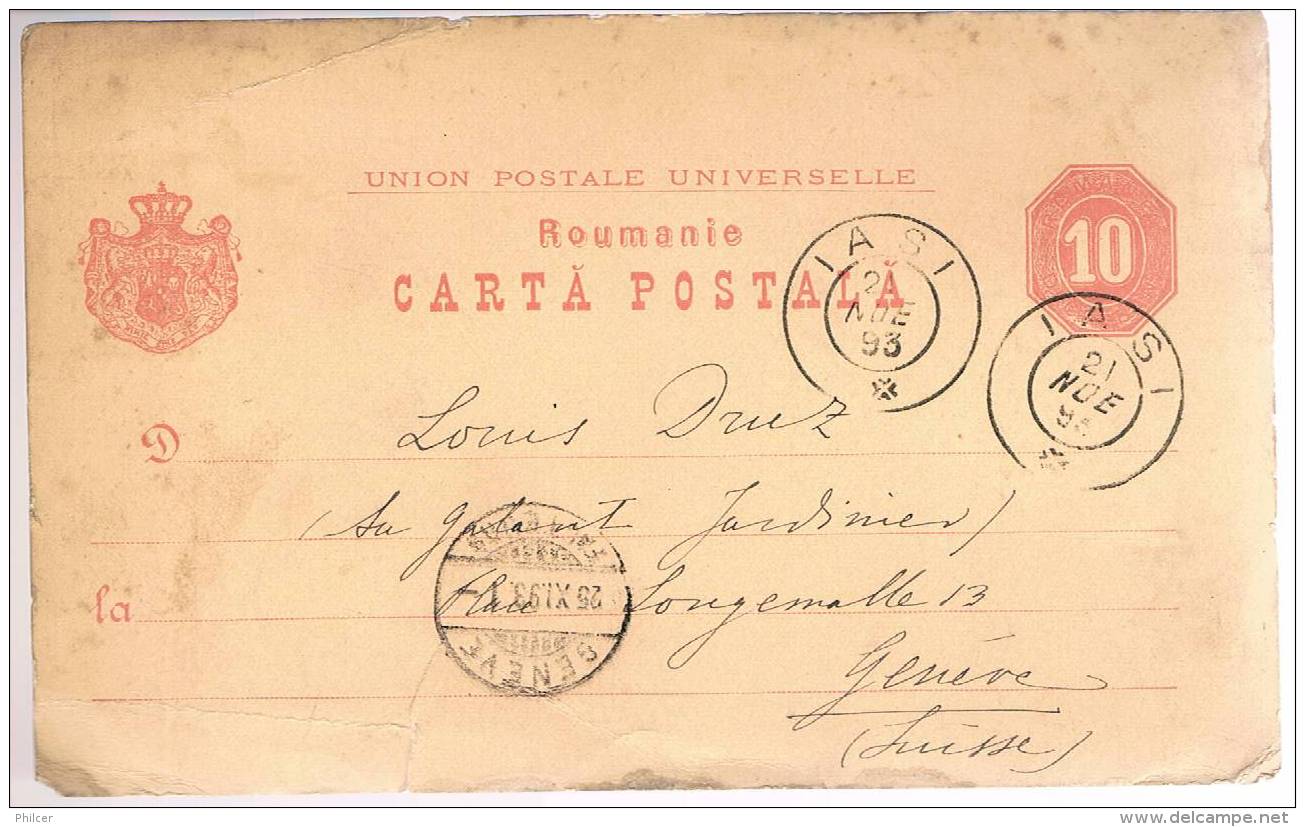 UNION POSTALE UNIVERSELLE
Roumanie
CARTĂ POSTALĂ
10
IASI
21
NOE
93
IASI
21
NOE
Louis Druz
D
(Au galant Jardinier)
la
Place Longemalle 13
GENÈVE
XI.93
Genève
(Suisse)
Philcer
www.delcampe.net